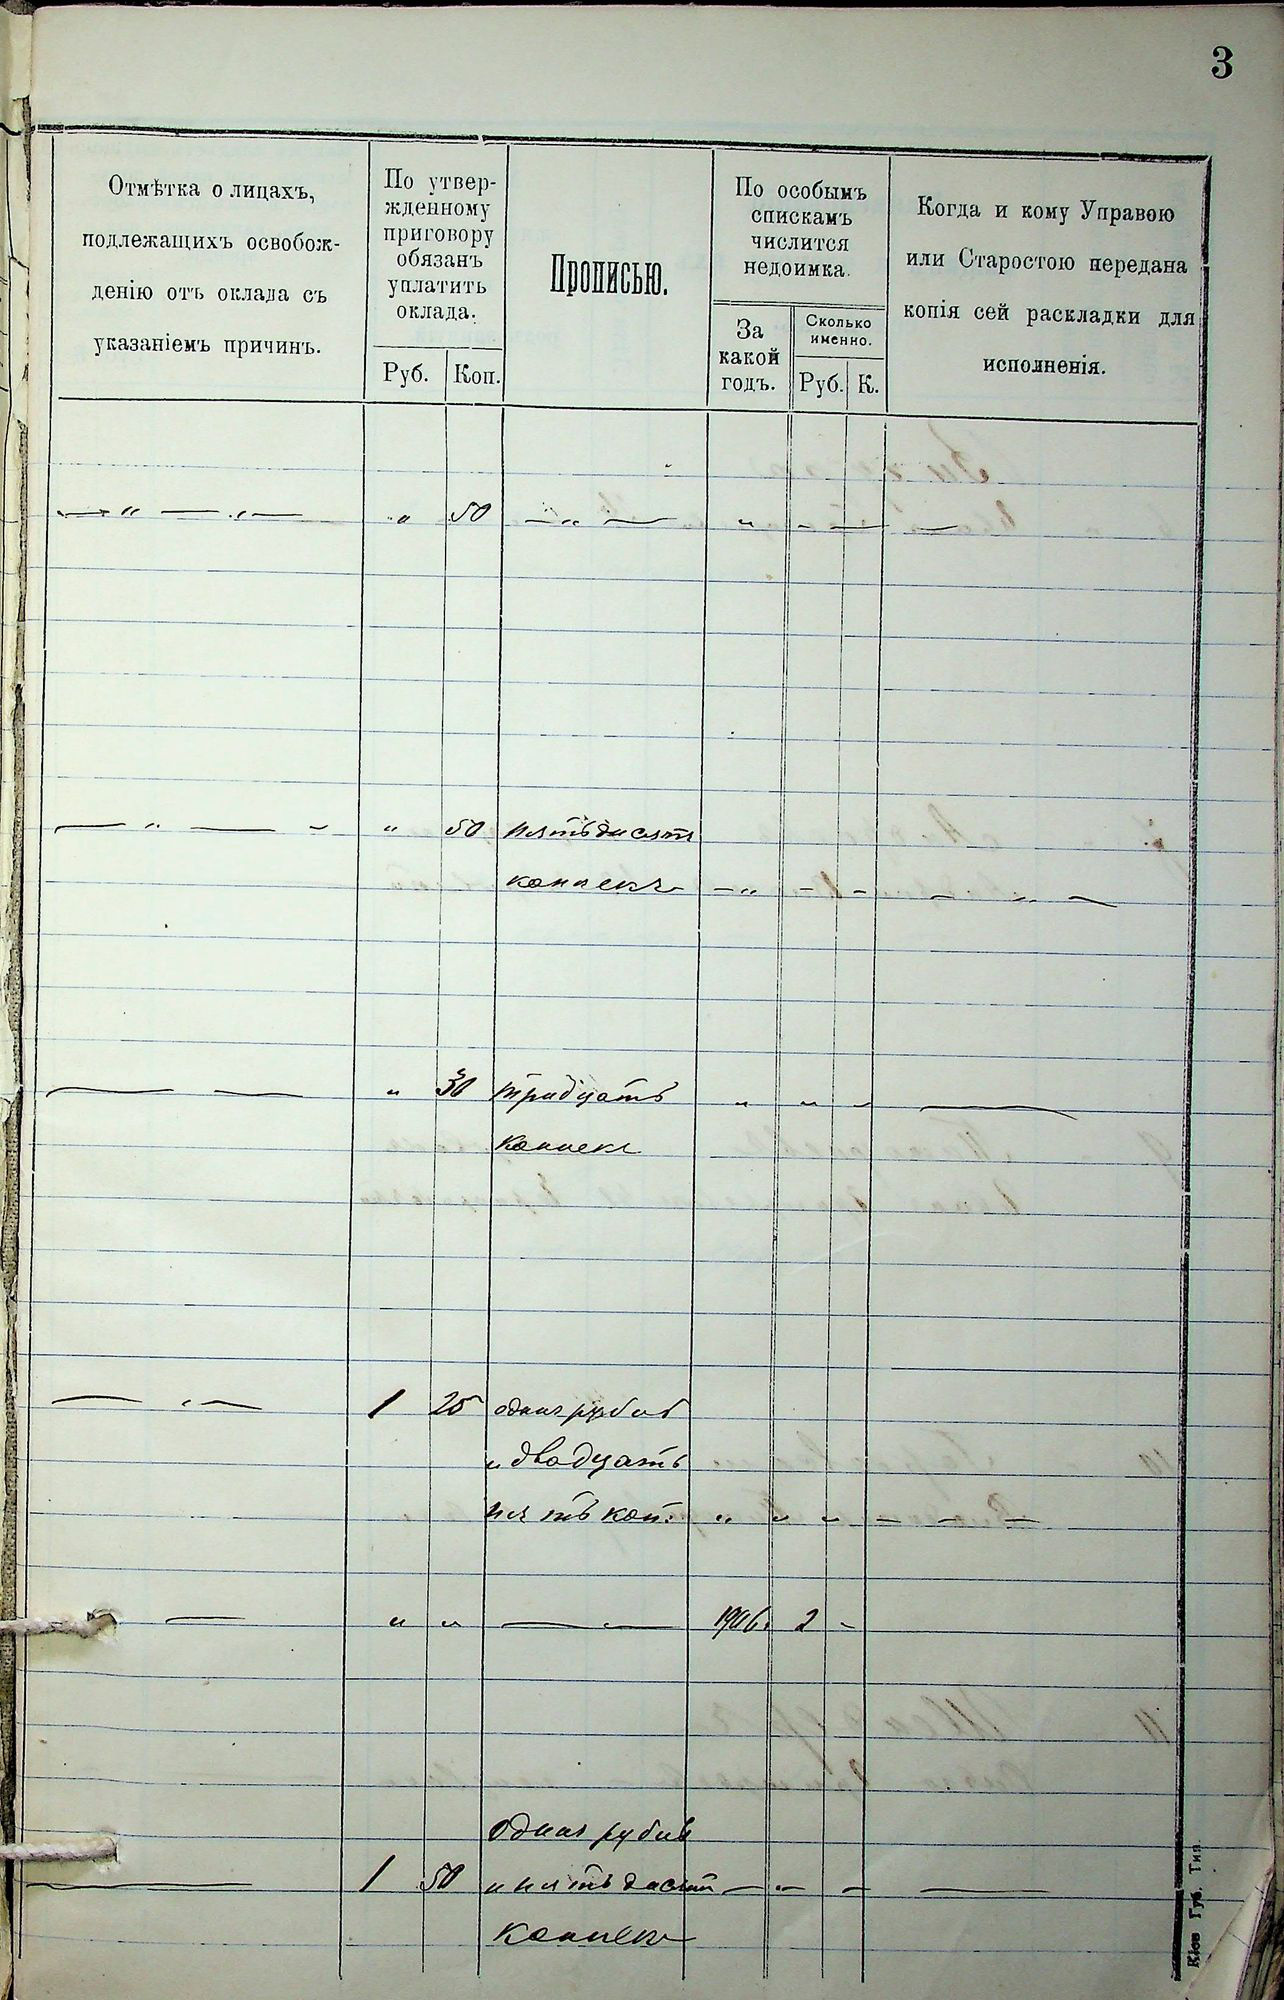 3
Отмѣтка о лицахъ,
подлежащихъ освобож-
денію отъ оклада съ
указаніемъ причинъ.
По утвер-
жденному
приговору
обязанъ
уплатить
оклада.
Руб. Коп.
Прописью.
По особымъ
спискамъ
числится
недоимка.
За
какой
годъ.
Сколько
именно.
Руб. К.
Когда и кому Управою
или Старостою передана
копія сей раскладки для
исполненія.
— „ — „ — „ 50 — „ — „ — — —
— „ — - „ 50 пятьдесят
копеекъ — „ — - — — „ —
— — „ 30 тридцать „ „ „ —
копеекъ
— „ — 1 25 одинъ рубль
и двадцать
пять коп. „ „ „ — — —
— „ „ — — 1906. 2 -
одинъ рубль
— 1 50 и пятьдесят — „ — —
копеекъ
Кіев Губ. Тип.